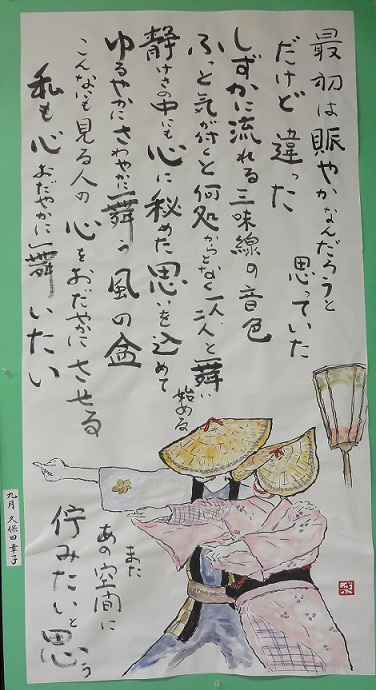 最初は賑やかなんだろうと
思っていた
だけど違った
しずかに流れる三味線の音色
ふっと気が付くと何処からとなく一人、二人と舞い
始める
静けさの中にも心に秘めた思いを込めて
ゆるやかにさわやかに舞う風の盆
こんなにも見る人の心をおだやかにさせる
私も心おだやかに舞いたい
また
あの空間に
佇みたいと思う
九月 久保田幸子
幸